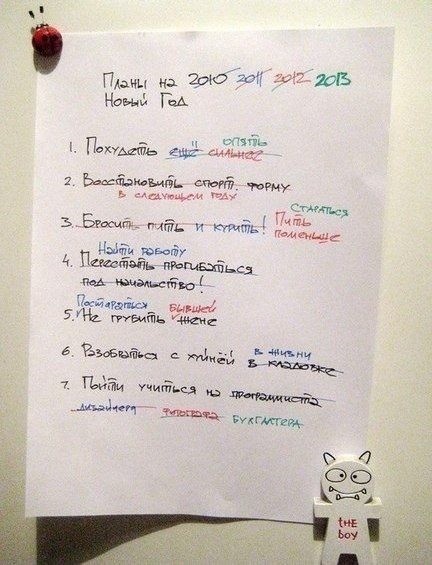 Планы на 2010 2011 2012 2013
Новый Год
опять
1. Похудеть ещё сильнее
2. Восстановить спорт. форму
в следующем году
стараться
3. Бросить пить и курить! Пить
поменьше
Найти работу
4. Перестать прогибаться
под начальство!
Постараться бывшей
5. Не грубить жене
6. Разобраться с хуйнёй в жизни
в кладовке
7. Пойти учиться на программиста
дизайнера фотографа бухгалтера
the
boy